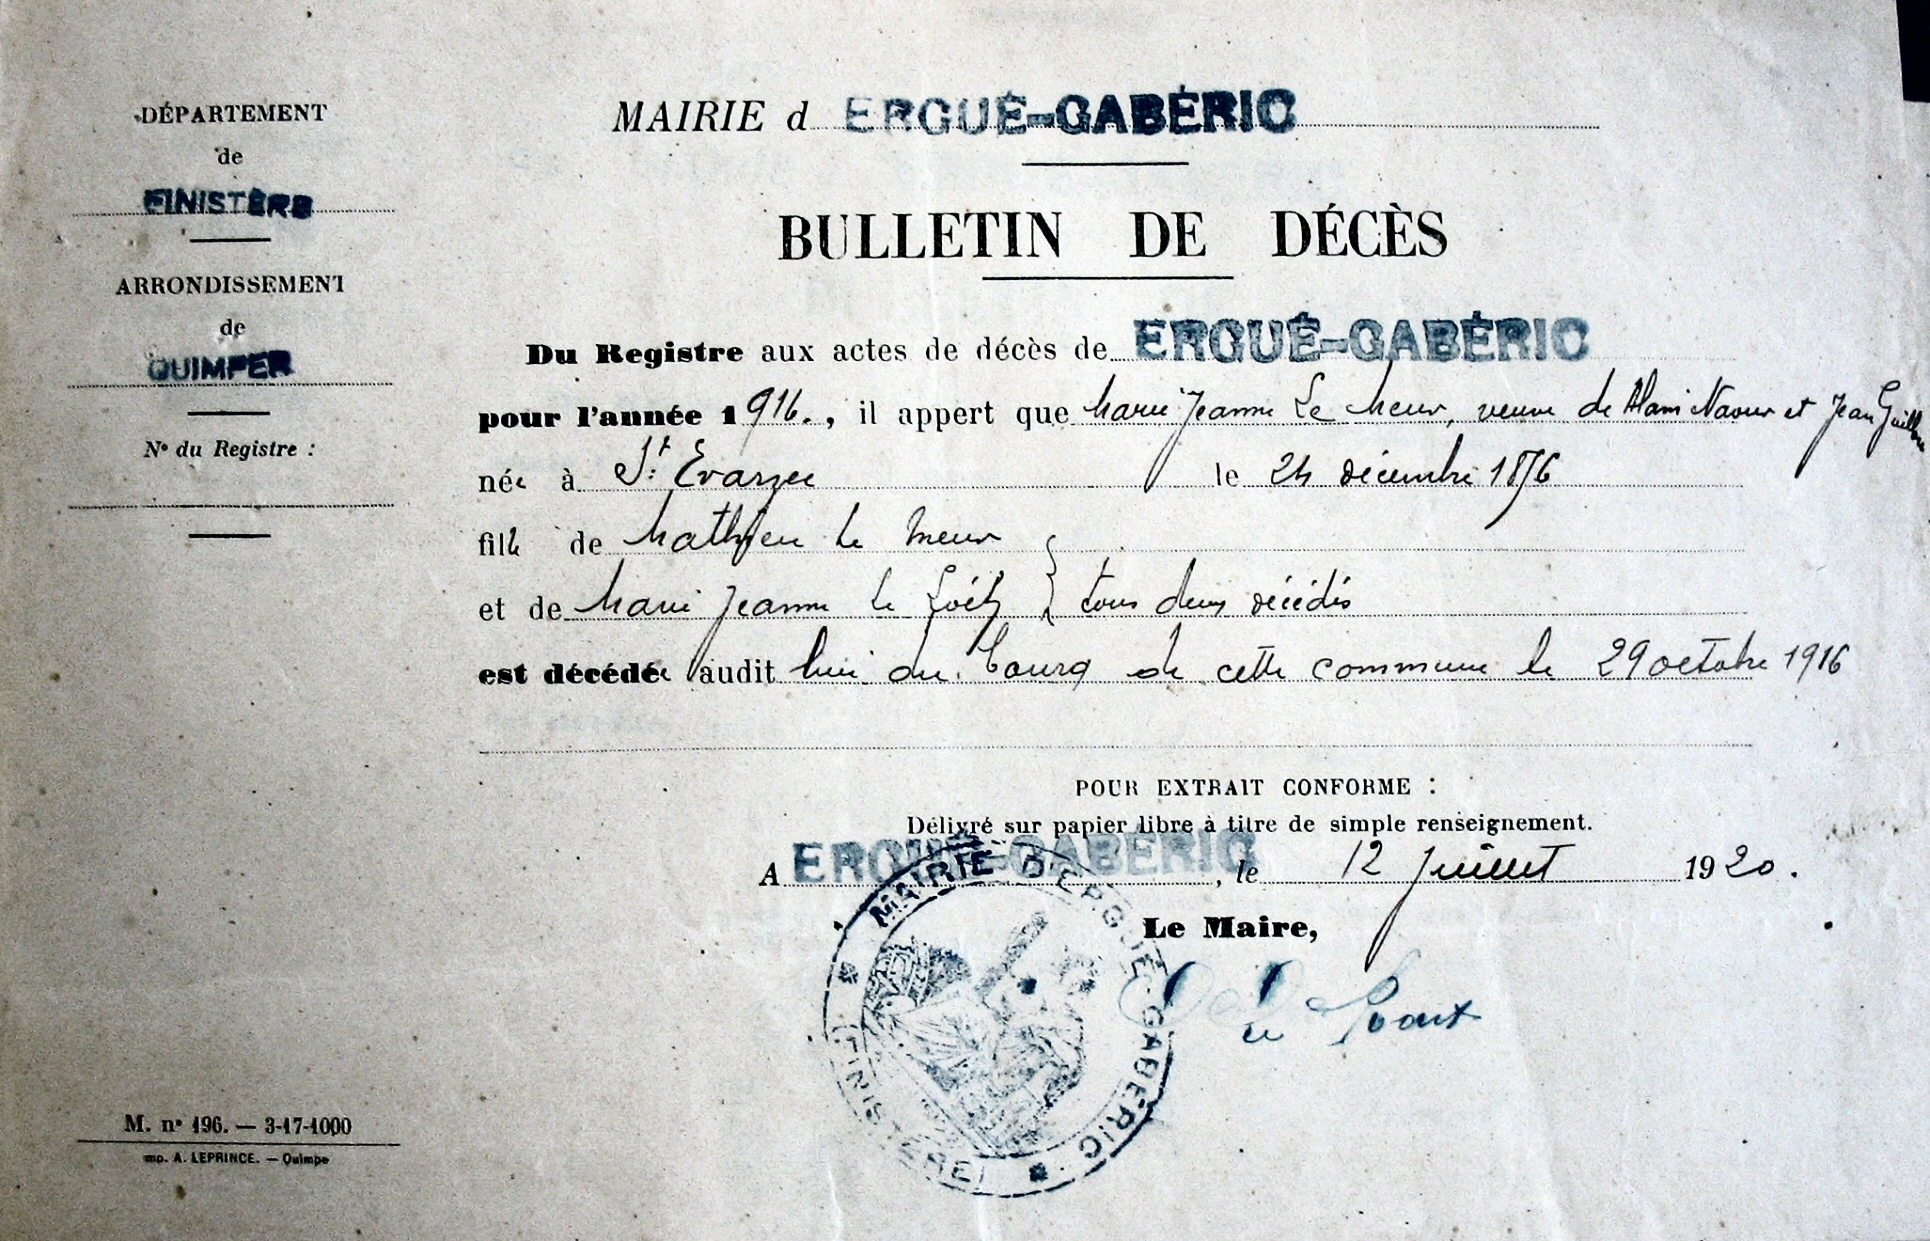 DÉPARTEMENT
de
FINISTÈRE
ARRONDISSEMENT
de
QUIMPER
N° du Registre :
M. n° 196. — 3-17-1000
Imp. A. LEPRINCE. — Quimper
MAIRIE d ERGUÉ-GABÉRIC
BULLETIN DE DÉCÈS
Du Registre aux actes de décès de ERGUÉ-GABÉRIC
pour l'année 1916., il appert que Marie Jeanne Le Meur, veuve de Alain Naour et Jean Guillou
née à St Evarzec le 24 décembre 1876
fille de Mathieu Le Meur
et de Marie Jeanne Le } tous deux décédés
est décédée audit lieu du bourg de cette commune le 29 octobre 1916
POUR EXTRAIT CONFORME :
Délivré sur papier libre à titre de simple renseignement.
A ERGUÉ-GABÉRIC, le 12 Juillet 1920.
Le Maire,
MAIRIE D'ERGUÉ-GABÉRIC
(FINISTÈRE)